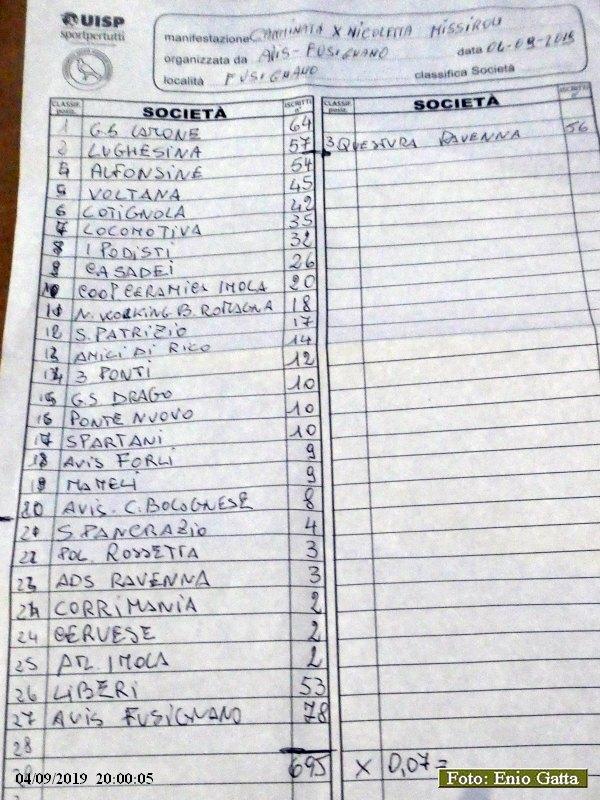 UISP
sportpertutti
manifestazione CAMMINATA X NICOLETTA MISSIROLI
organizzata da AVIS - FUSIGNANO data 04-09-2019
località FUSIGNANO classifica Società
CLASSIF. SOCIETÀ ISCRITTI CLASSIF. SOCIETÀ ISCRITTI
1 G.S. LAMONE 64
2 LUGHESINA 57 3 QUESTURA RAVENNA 56
4 ALFONSINE 54
5 VOLTANA 45
6 COTIGNOLA 42
7 LOCOMOTIVA 35
8 I PODISTI 32
9 CASADEI 26
10 COOP CERAMICA IMOLA 20
11 N. WORKING B. ROMAGNA 18
12 S. PATRIZIO 17
13 AMICI DI RICO 14
14 3 PONTI 12
15 G.S DRAGO 10
16 PONTE NUOVO 10
17 SPARTANI 10
18 AVIS FORLI 9
19 MAMELI 9
20 AVIS. C. BOLOGNESE 8
21 S. PANCRAZIO 4
22 POL. ROSSETTA 3
23 ADS RAVENNA 3
24 CORRIMANIA 2
24 CERVESE 2
25 ATL IMOLA 2
26 LIBERI 53
27 AVIS FUSIGNANO 78
28
695 X 0,07=
04/09/2019 20:00:05
Foto: Enio Gatta